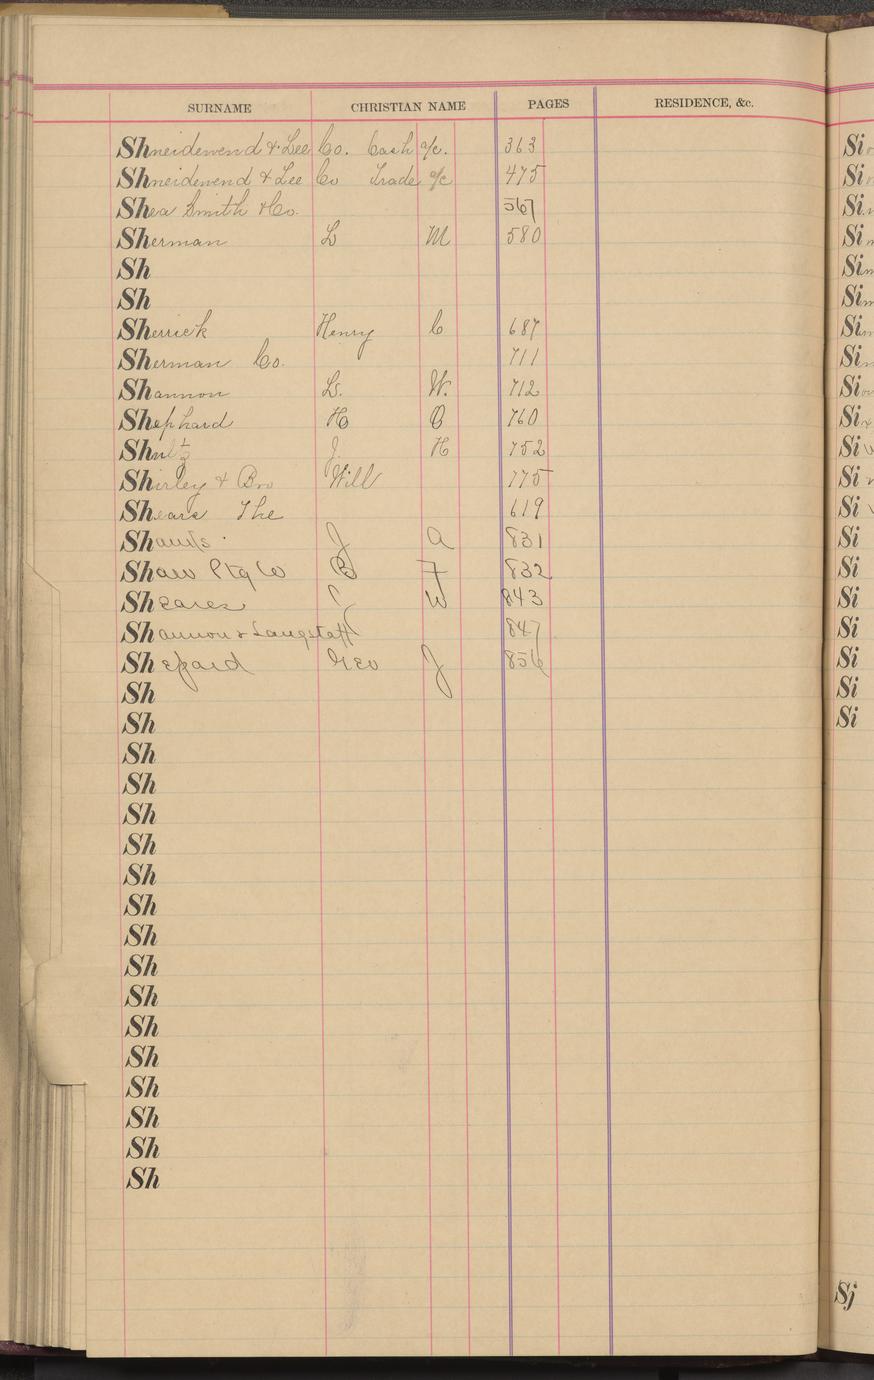 SURNAME CHRISTIAN NAME PAGES RESIDENCE, &c.
Shneidewend & Lee Co. Cash a/c. 363
Shneidewend & Lee Co Trade a/c 475
Shea Smith & Co. 567
Sherman L M 580
Sh
Sh
Sherrick Henry C 687
Sherman Co. 711
Shannon L. W. 712
Shephard H O 760
Shultz J. H 752
Shirley & Bro Will 775
Shears The 619
J A 831
Shaw Ptg Co B F 832
Sheares W 843
Shannon & Langstaff 847
Shepard Geo J 856
Sh
Sh
Sh
Sh
Sh
Sh
Sh
Sh
Sh
Sh
Sh
Sh
Sh
Sh
Sh
Sh
Sh
Si
Si
Si
Si
Si
Si
Si
Si
Si
Si
Si
Si
Si
Si
Si
Si
Si
Si
Si
Si
Sj